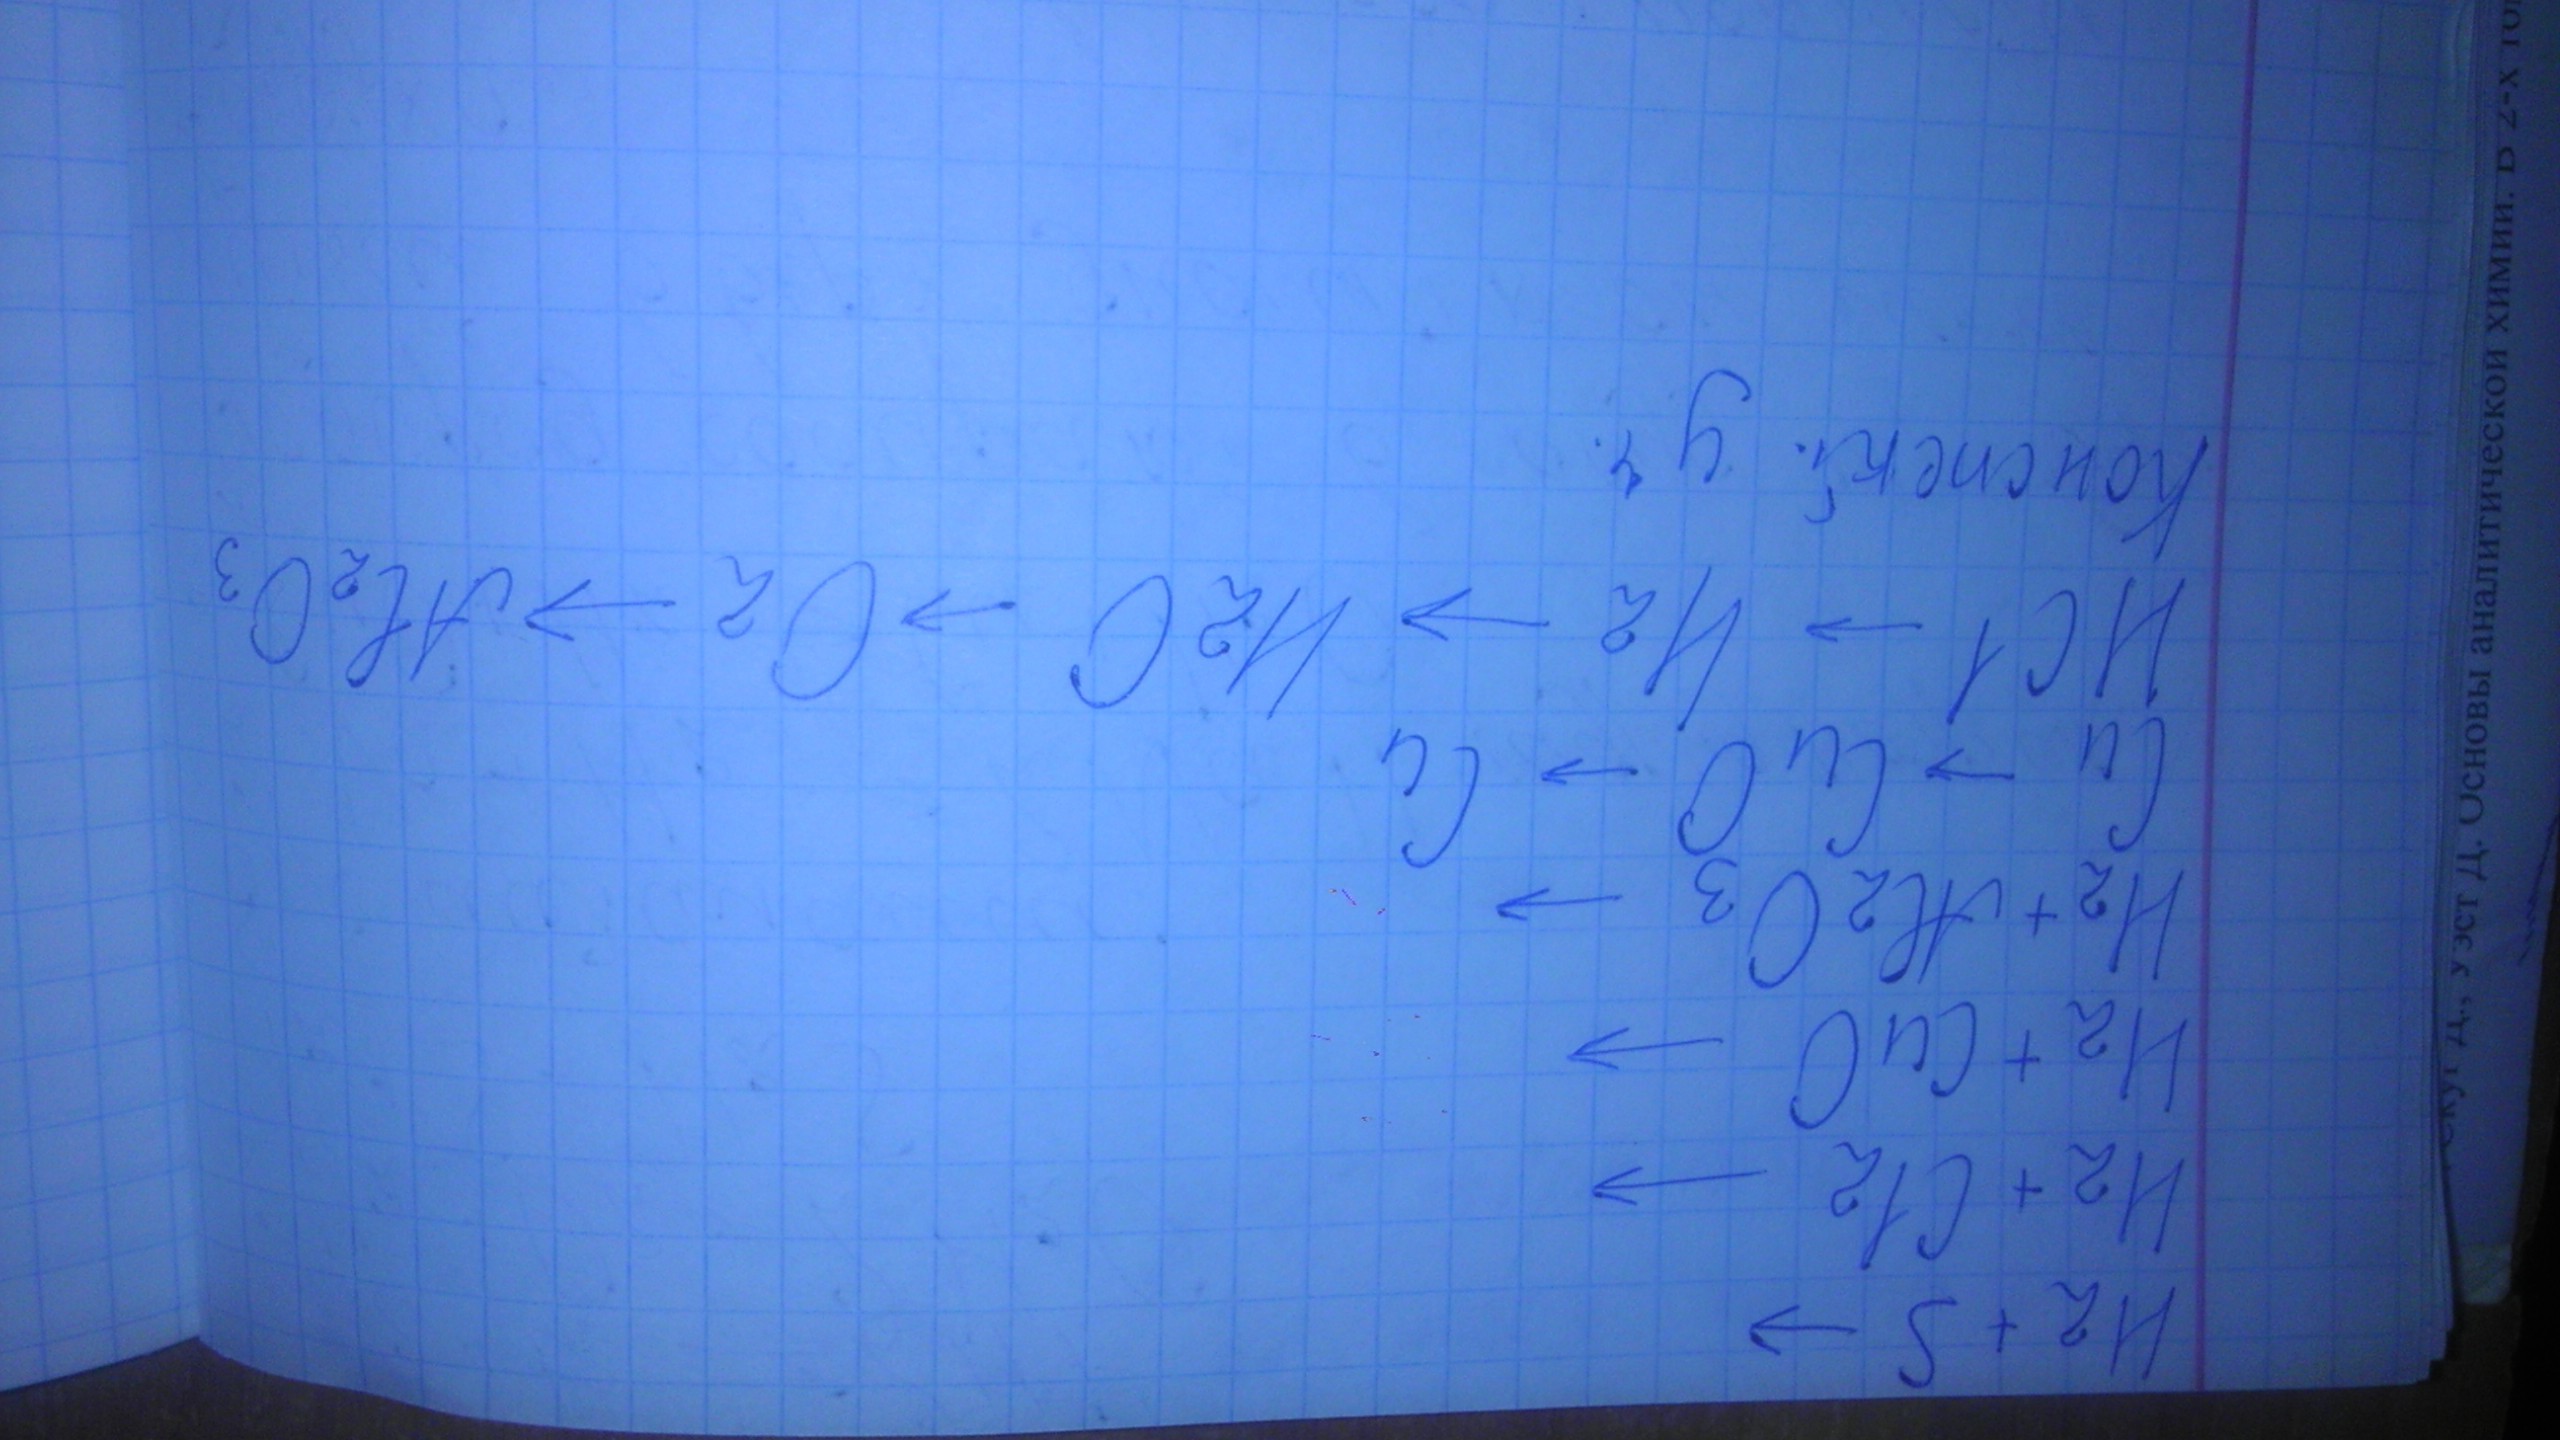 H2 + S →
H2 + Cl2 →
H2 + CuO →
H2 + Al2O3 →
Cu → CuO → Cu
HCl → H2 → H2O → O2 → Al2O3
Конспект. у
Д., Уэст Д. Основы аналитической химии. В 2-х